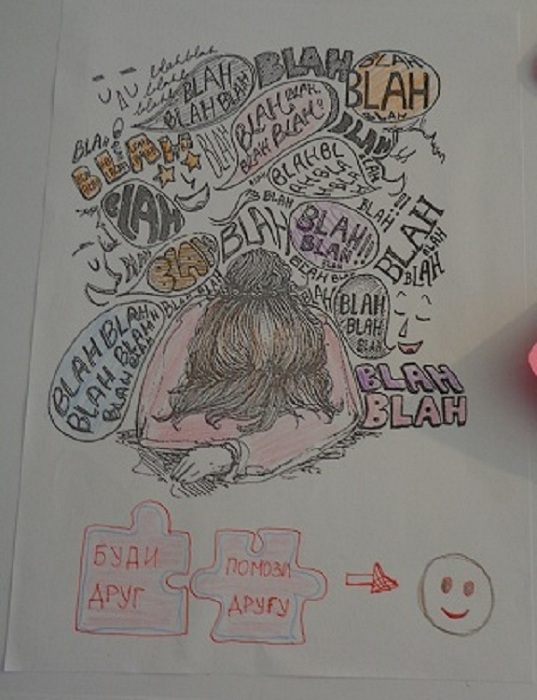 blahblah
blah
blah
BLAH
BLAH BLAH
BLAH
BLAH
BLAH
BLAH
BLAH
BLAH
BLAH BLAH!!
BLAH
BLAH
BLAH
BLAH
BLAH
BLAH
BLAH
BLAH!!
BLAH
BLAH
BLAH
BLAH
BLAH
BLAH
BLAH
BLAH
BLAH
BLAH
BLAH BLAH
BLAH BLAH
BLAH
BLAH
BLAH
БУДИ
ДРУГ
ПОМОЗИ
ДРУГУ